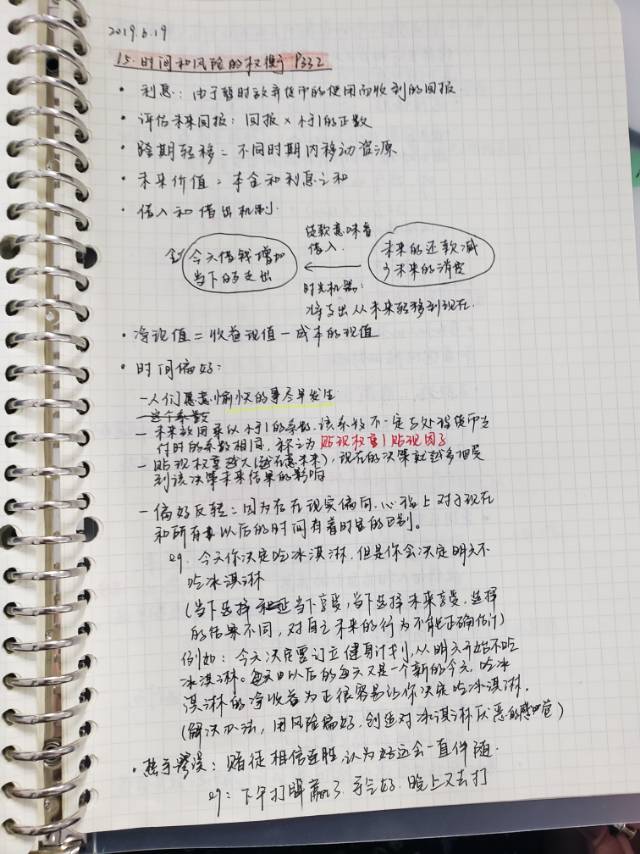 2019.6.19
15. 时间和风险的权衡 P332
· 利息：由于暂时放弃货币的使用而收到的回报.
· 评估未来回报：回报 × 小于1的正数
· 跨期转移 = 不同时期内移动资源
· 未来价值：本金和利息之和
· 借入和借出机制.
今天借钱增加
当下的支出
贷款意味着
借入.
时光机器：
将支出从未来转移到现在.
未来的还款减
少未来的消费
· 净现值 = 收益现值 - 成本的现值
· 时间偏好：
- 人们愿意愉快的事尽早发生
- 这个系数
- 未来效用乘以小于1的系数. 该系数不一定与处理货币支
付时的系数相同，称之为 贴现权重|贴现因子
- 贴现权重越大(越在意未来)，现在的决策就越多地受
到该决策未来结果的影响
- 偏好反转：因为存在现实偏向. 心理上对于现在
和所有以后的时间有着时空的区别。
eg. 今天你决定吃冰淇淋，但是你会决定明天不
吃冰淇淋
(当下选择当下享受，当下选择未来享受，选择
的结果不同，对自己未来的行为不能正确估计)
例如：今天决定要订立健身计划，从明天开始不吃
冰淇淋。每天以后的每天又是一个新的今天，吃冰
淇淋的净收益为正很容易让你决定吃冰淇淋.
(解决办法，用风险偏好，创造对冰淇淋厌恶的感觉)
· 热手谬误：赌徒相信连胜，认为好运会一直伴随.
eg：下午打牌赢了，手气好，晚上又去打